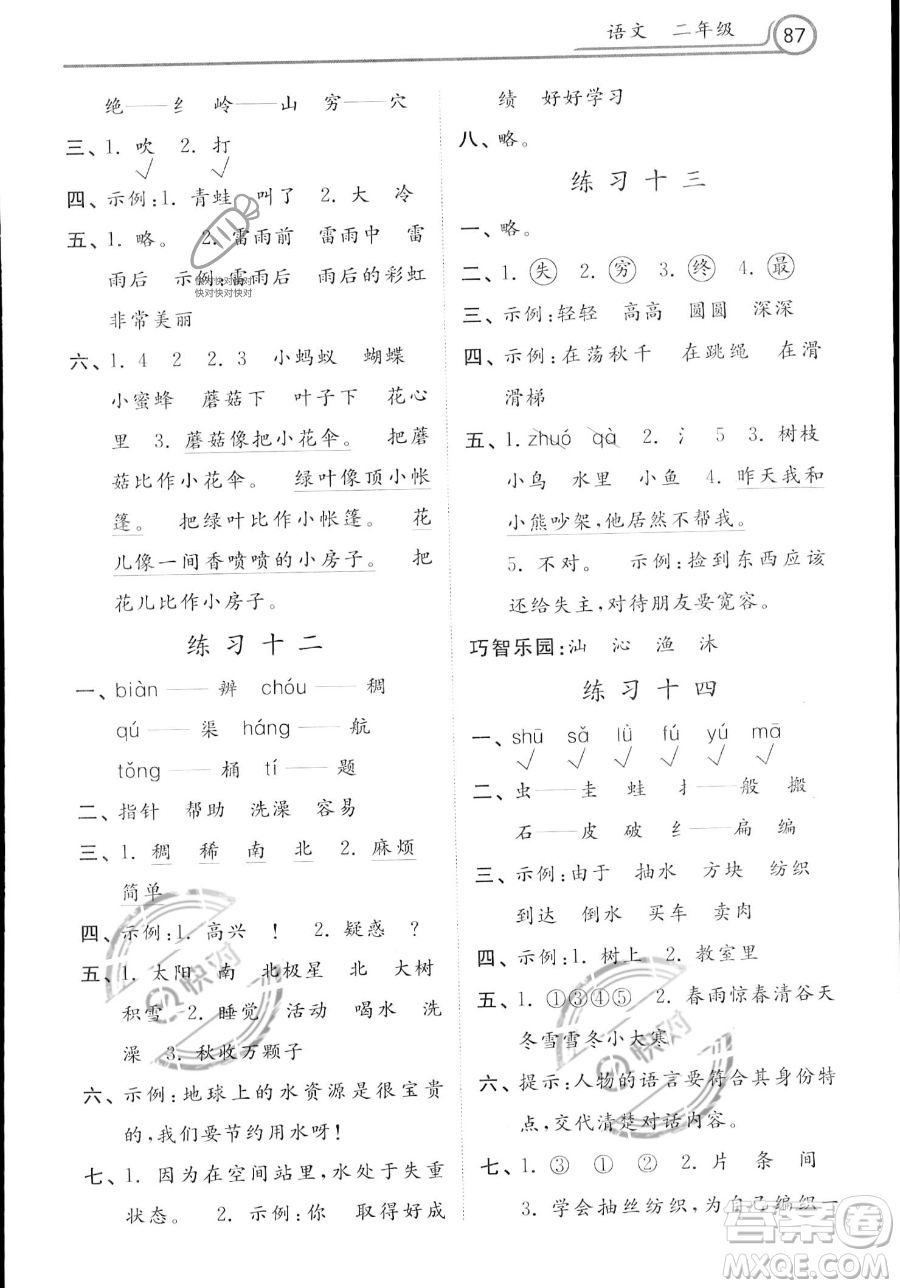 语文 二年级 87
绝——纟 岭——山 穷——穴
三、1. 吹 2. 打
√ √
四、示例:1. 青蛙 叫了 2. 大 冷
五、1. 略。 2. 雷雨前 雷雨中 雷
雨后 示例:雷雨后 雨后的彩虹
快对快对快对
快对快对快对
非常美丽
六、1. 4 2 2. 3 小蚂蚁 蝴蝶
小蜜蜂 蘑菇下 叶子下 花心
里 3. 蘑菇像把小花伞。 把蘑
菇比作小花伞。 绿叶像顶小帐
篷。 把绿叶比作小帐篷。 花
儿像一间香喷喷的小房子。 把
花儿比作小房子。
练习十二
一、biàn——辨 chóu——稠
qú——渠 háng——航
tǒng——桶 tí——题
二、指针 帮助 洗澡 容易
三、1. 稠 稀 南 北 2. 麻烦
简单
四、示例:1. 高兴 ! 2. 疑惑 ?
五、1. 太阳 南 北极星 北 大树
积雪 2. 睡觉 活动 喝水 洗
澡 3. 秋收万颗子
六、示例:地球上的水资源是很宝贵
的,我们要节约用水呀!
七、1. 因为在空间站里,水处于失重
状态。 2. 示例:你 取得 好成
绩 好好学习
八、略。
练习十三
一、略。
二、1. 失 2. 穷 3. 终 4. 最
三、示例:轻轻 高高 圆圆 深深
四、示例:在荡秋千 在跳绳 在滑
滑梯
五、1. zhuó qà 2. 氵 5 3. 树枝
小鸟 水里 小鱼 4. 昨天我和
小熊吵架,他居然不帮我。
5. 不对。 示例:捡到东西应该
还给失主,对待朋友要宽容。
巧智乐园:汕 沁 渔 沐
练习十四
一、shū sǎ lǜ fú yú mú
√ √ √ √ √
二、虫——圭 蛙 扌——般 搬
石——皮 破 纟——扁 编
三、示例:由于 抽水 方块 纺织
到达 倒水 买车 卖肉
四、示例:1. 树上 2. 教室里
五、1. ①③④⑤ 2. 春雨惊春清谷天
冬雪雪冬小大寒
六、提示:人物的语言要符合其身份特
点,交代清楚对话内容。
七、1. ③ ① ② 2. 片 条 间
3. 学会抽丝纺织,为自己编织一
快对
快对
答案卷
MXQE.COM